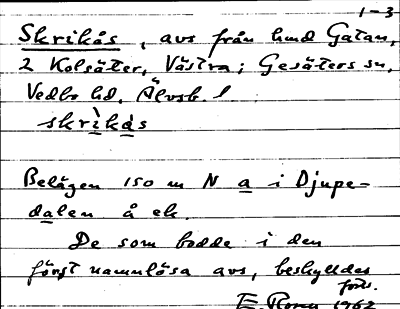 1-3
Skrikås, avs från hmd Gatan,
2 Kolsäter, Västra; Gesäters sn,
Vedbo hd, Älvsb. l
skrìkås
Belägen 150 m N a i Djupe-
dalen å ek.
De som bodde i den
först namnlösa avs, beskylldes
forts.
E. 1962